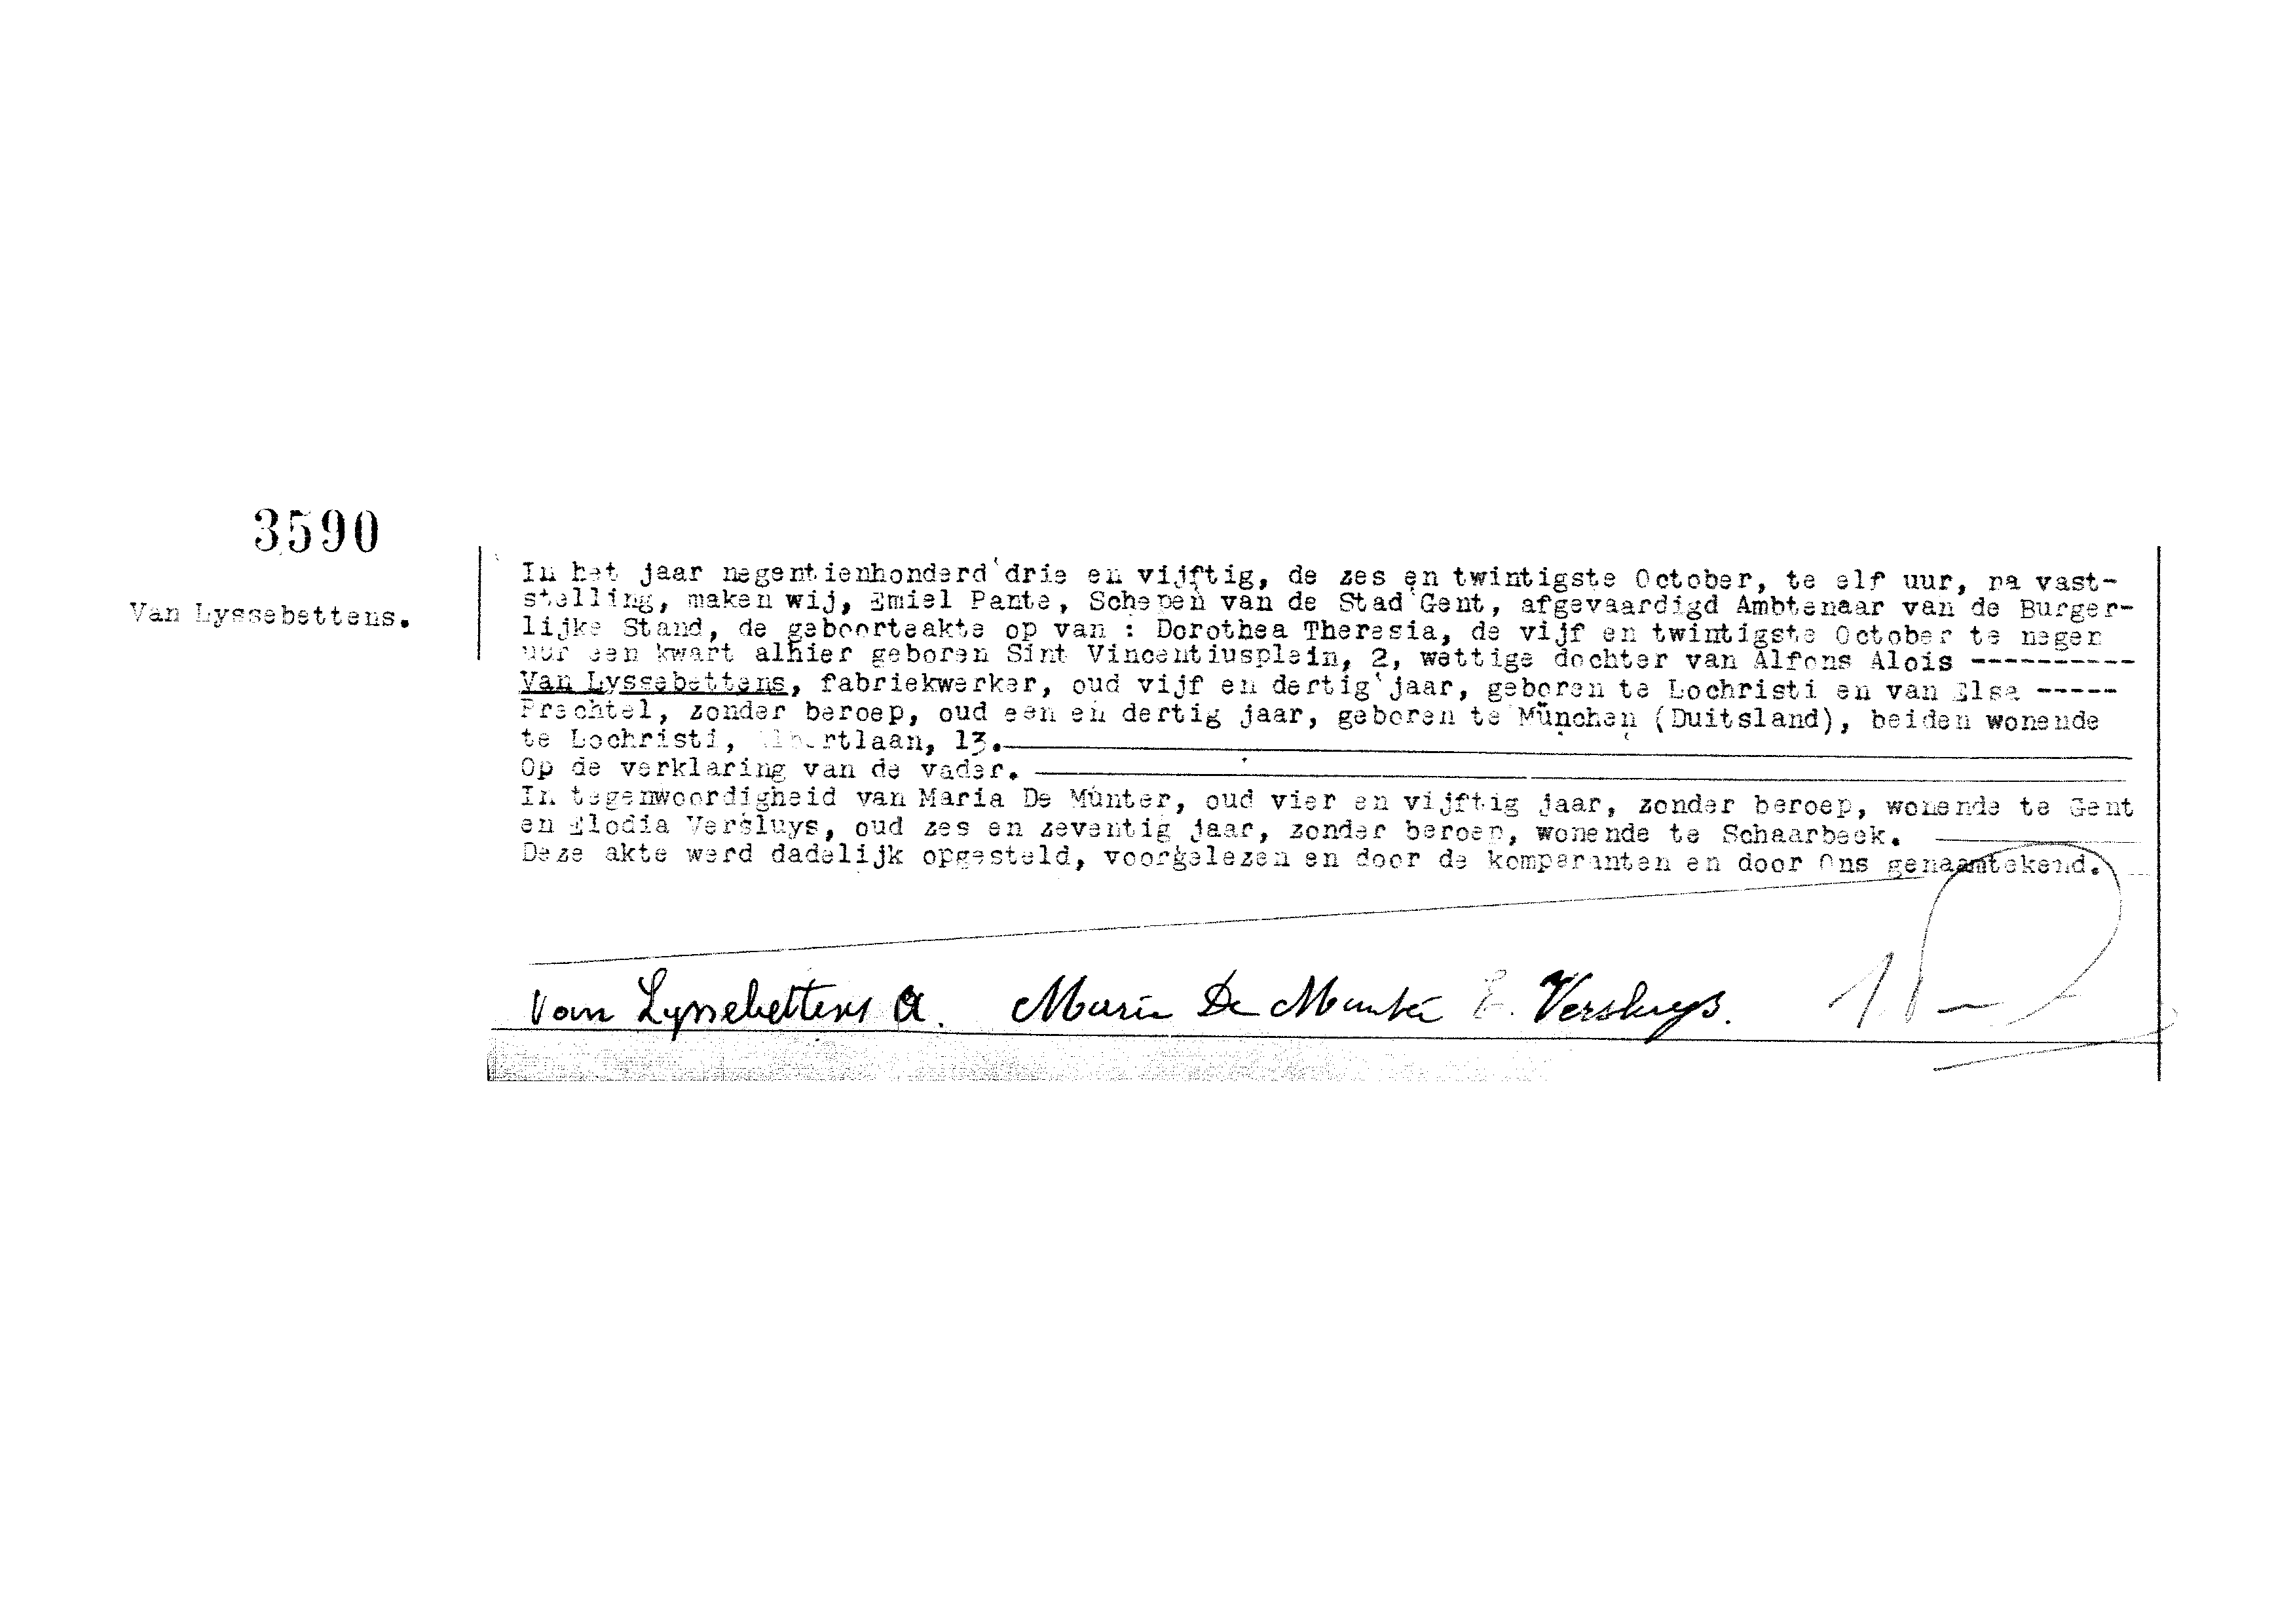 3590
Van Lyssebettens.
In het jaar negentienhonderd drie en vijftig, de zes en twintigste October, te elf uur, na vast-
stelling, maken wij, Emiel Pante, Schepen van de Stad Gent, afgevaardigd Ambtenaar van de Burger-
lijke Stand, de geboorteakte op van : Dorothea Theresia, de vijf en twintigste October te negen
uur een kwart alhier geboren Sint Vincentiusplein, 2, wettige dochter van Alfons Alois ----------
Van Lyssebettens, fabriekwerker, oud vijf en dertig jaar, geboren te Lochristi en van Elsa -----
Prechtel, zonder beroep, oud een en dertig jaar, geboren te München (Duitsland), beiden wonende
te Lochristi, Albertlaan, 13.
Op de verklaring van de vader.
In tegenwoordigheid van Maria De Munter, oud vier en vijftig jaar, zonder beroep, wonende te Gent
en Elodia Versluys, oud zes en zeventig jaar, zonder beroep, wonende te Schaarbeek.
Deze akte werd dadelijk opgesteld, voorgelezen en door de komparanten en door Ons genaamtekend.
Van Lyssebettens A. Maria De Munter E. Versluys.